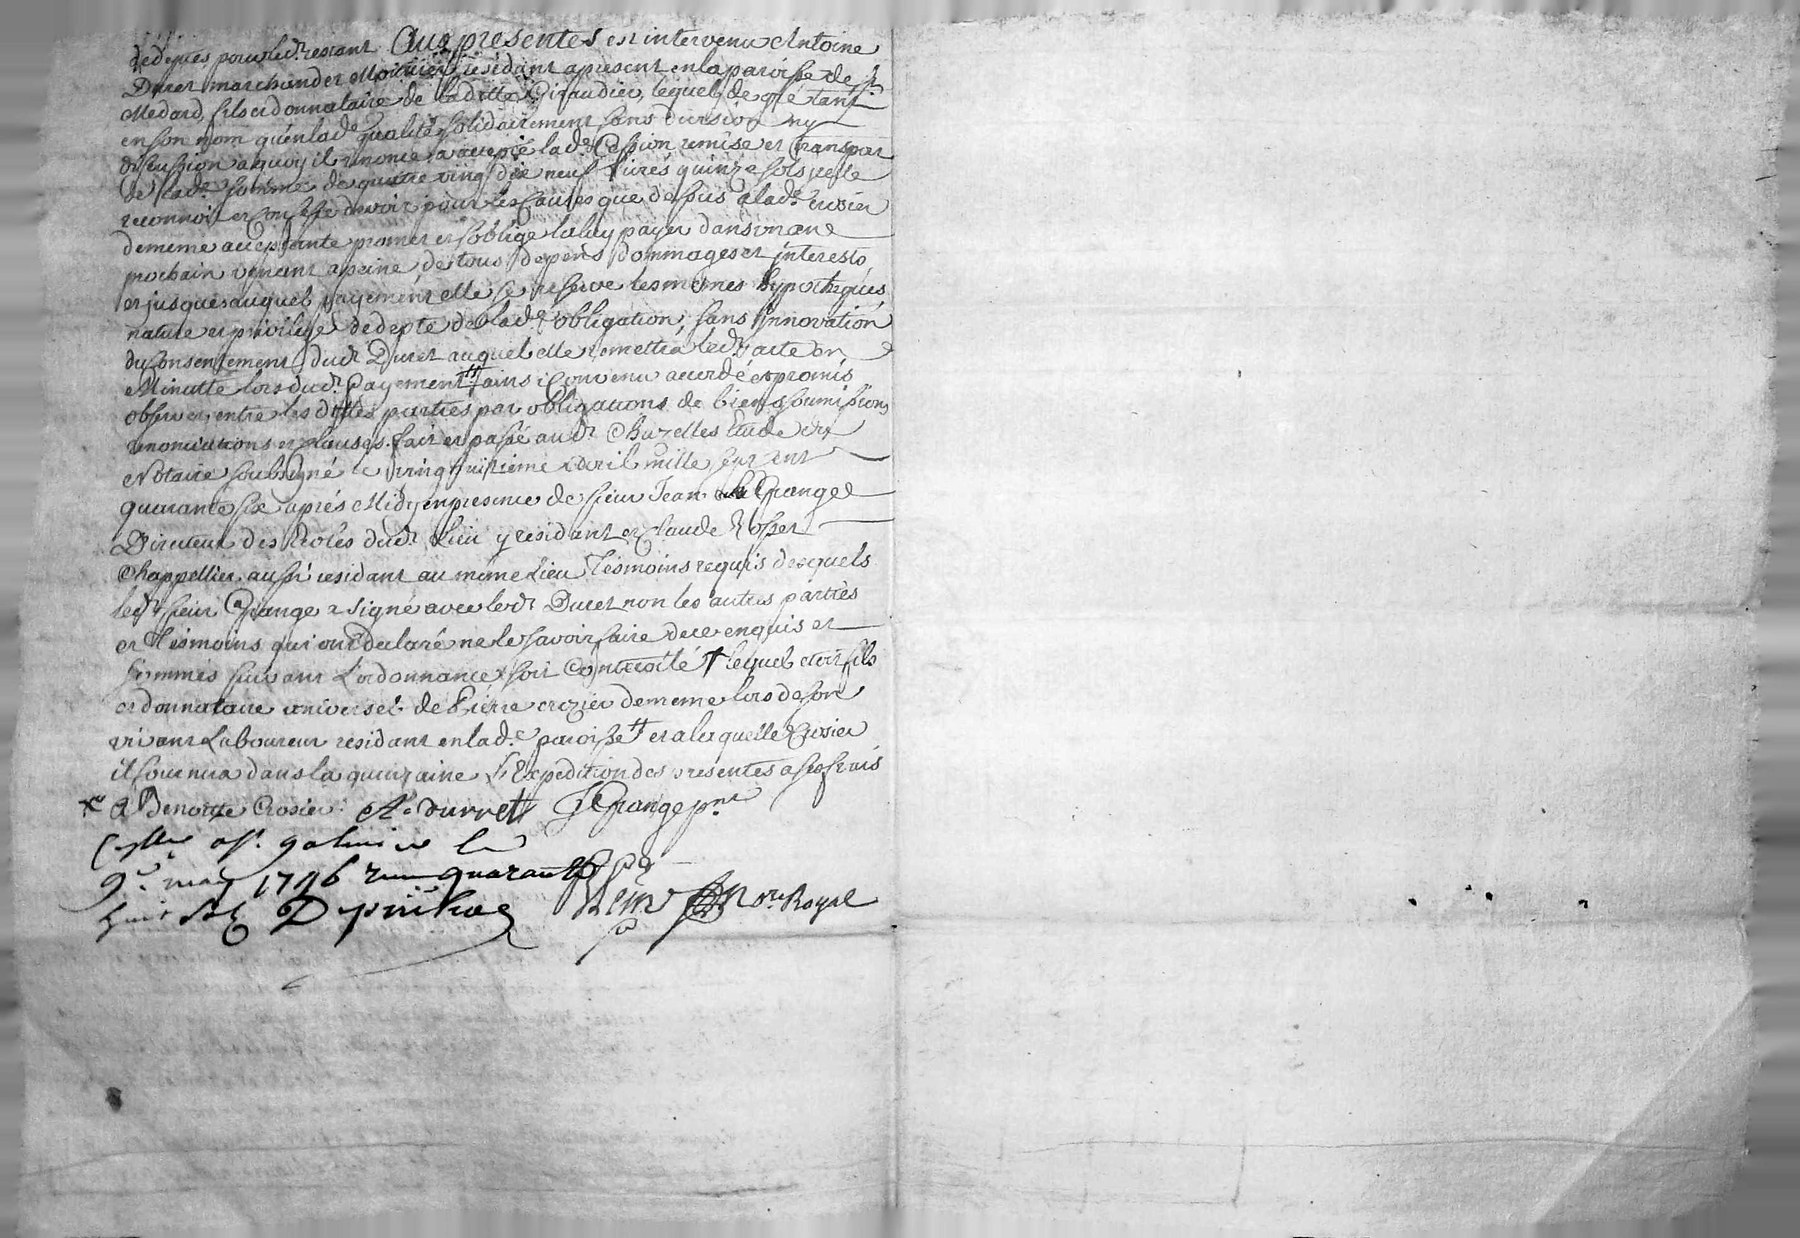 pour led.t restant Aux presentes est intervenu Antoine
Duret marchand et residant a present en la paroisse de S.t
Medard, fils et donnataire de laditte Giraudier, lequel de gré tant
en son nom qu'en lad.e qualité solidairement sans division ny
discussion a quoy il renonce a accepté lad.e Cession remise et transport
de lad.e somme de quatre ving dix neuf livres quinze sols qu'elle
reconnoit et Confesse devoir pour les Causes que dessus a lad.e Crosier
de meme acceptante promet et s'oblige la luy payer dans un an
prochain venant a peine de tous depens dommages et interests
et jusques auquel payement elle se reserve les memes hypotheques
nature et privilege de depte de lad.e obligation, sans innovation
du Consentement dud.t Duret auquel elle remettra led.t acte en
Minutte lors dud.t Payement †† ainsi Convenu accordé et promis
observer entre les dittes parties par obligations de biens soumissions
renonciations et clauses. fait et passé aud.t Chazelles Etude du
Notaire soubsigné le vingt huitieme avril mille sept cent
quarante six aprés Midy en presence de sieur Jean Grange
Directeur des Ecoles dud.t Lieu y residant et Claude Rosset
Chappellier aussi residant au méme Lieu Tesmoins requis desquels
led.t sieur Grange a signé avec led.t Duret non les autres parties
et Tesmoins qui ont declaré ne le savoir faire de ce enquis et
sommés suivant L'ordonnance soit Controllé † lequel etoit fils
et donnataire universel de Pierre crozier de meme lors de son
vivant Laboureur résidant en lad.e paroisse †† et a laquelle Crosier
il fournira dans la quinzaine L'Expedition des presentes a ses frais
x a Benoitte Crosier. A. durret J Grange p.nt
Con.lle a S.t galmier le
9.e may 1746 Reçu quarante
huit sols
N.re Royal